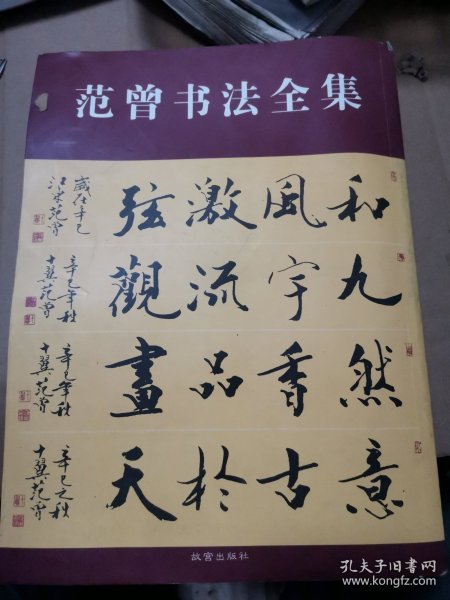 范曾书法全集
和風激弦
歲在辛巳
江東范曾
九宇流觀
辛巳年秋
十翼范曾
然香品畫
辛巳年秋
十翼范曾
意古於天
辛巳之秋
十翼范曾
故宫出版社
孔夫子旧书网
www.kongfz.com